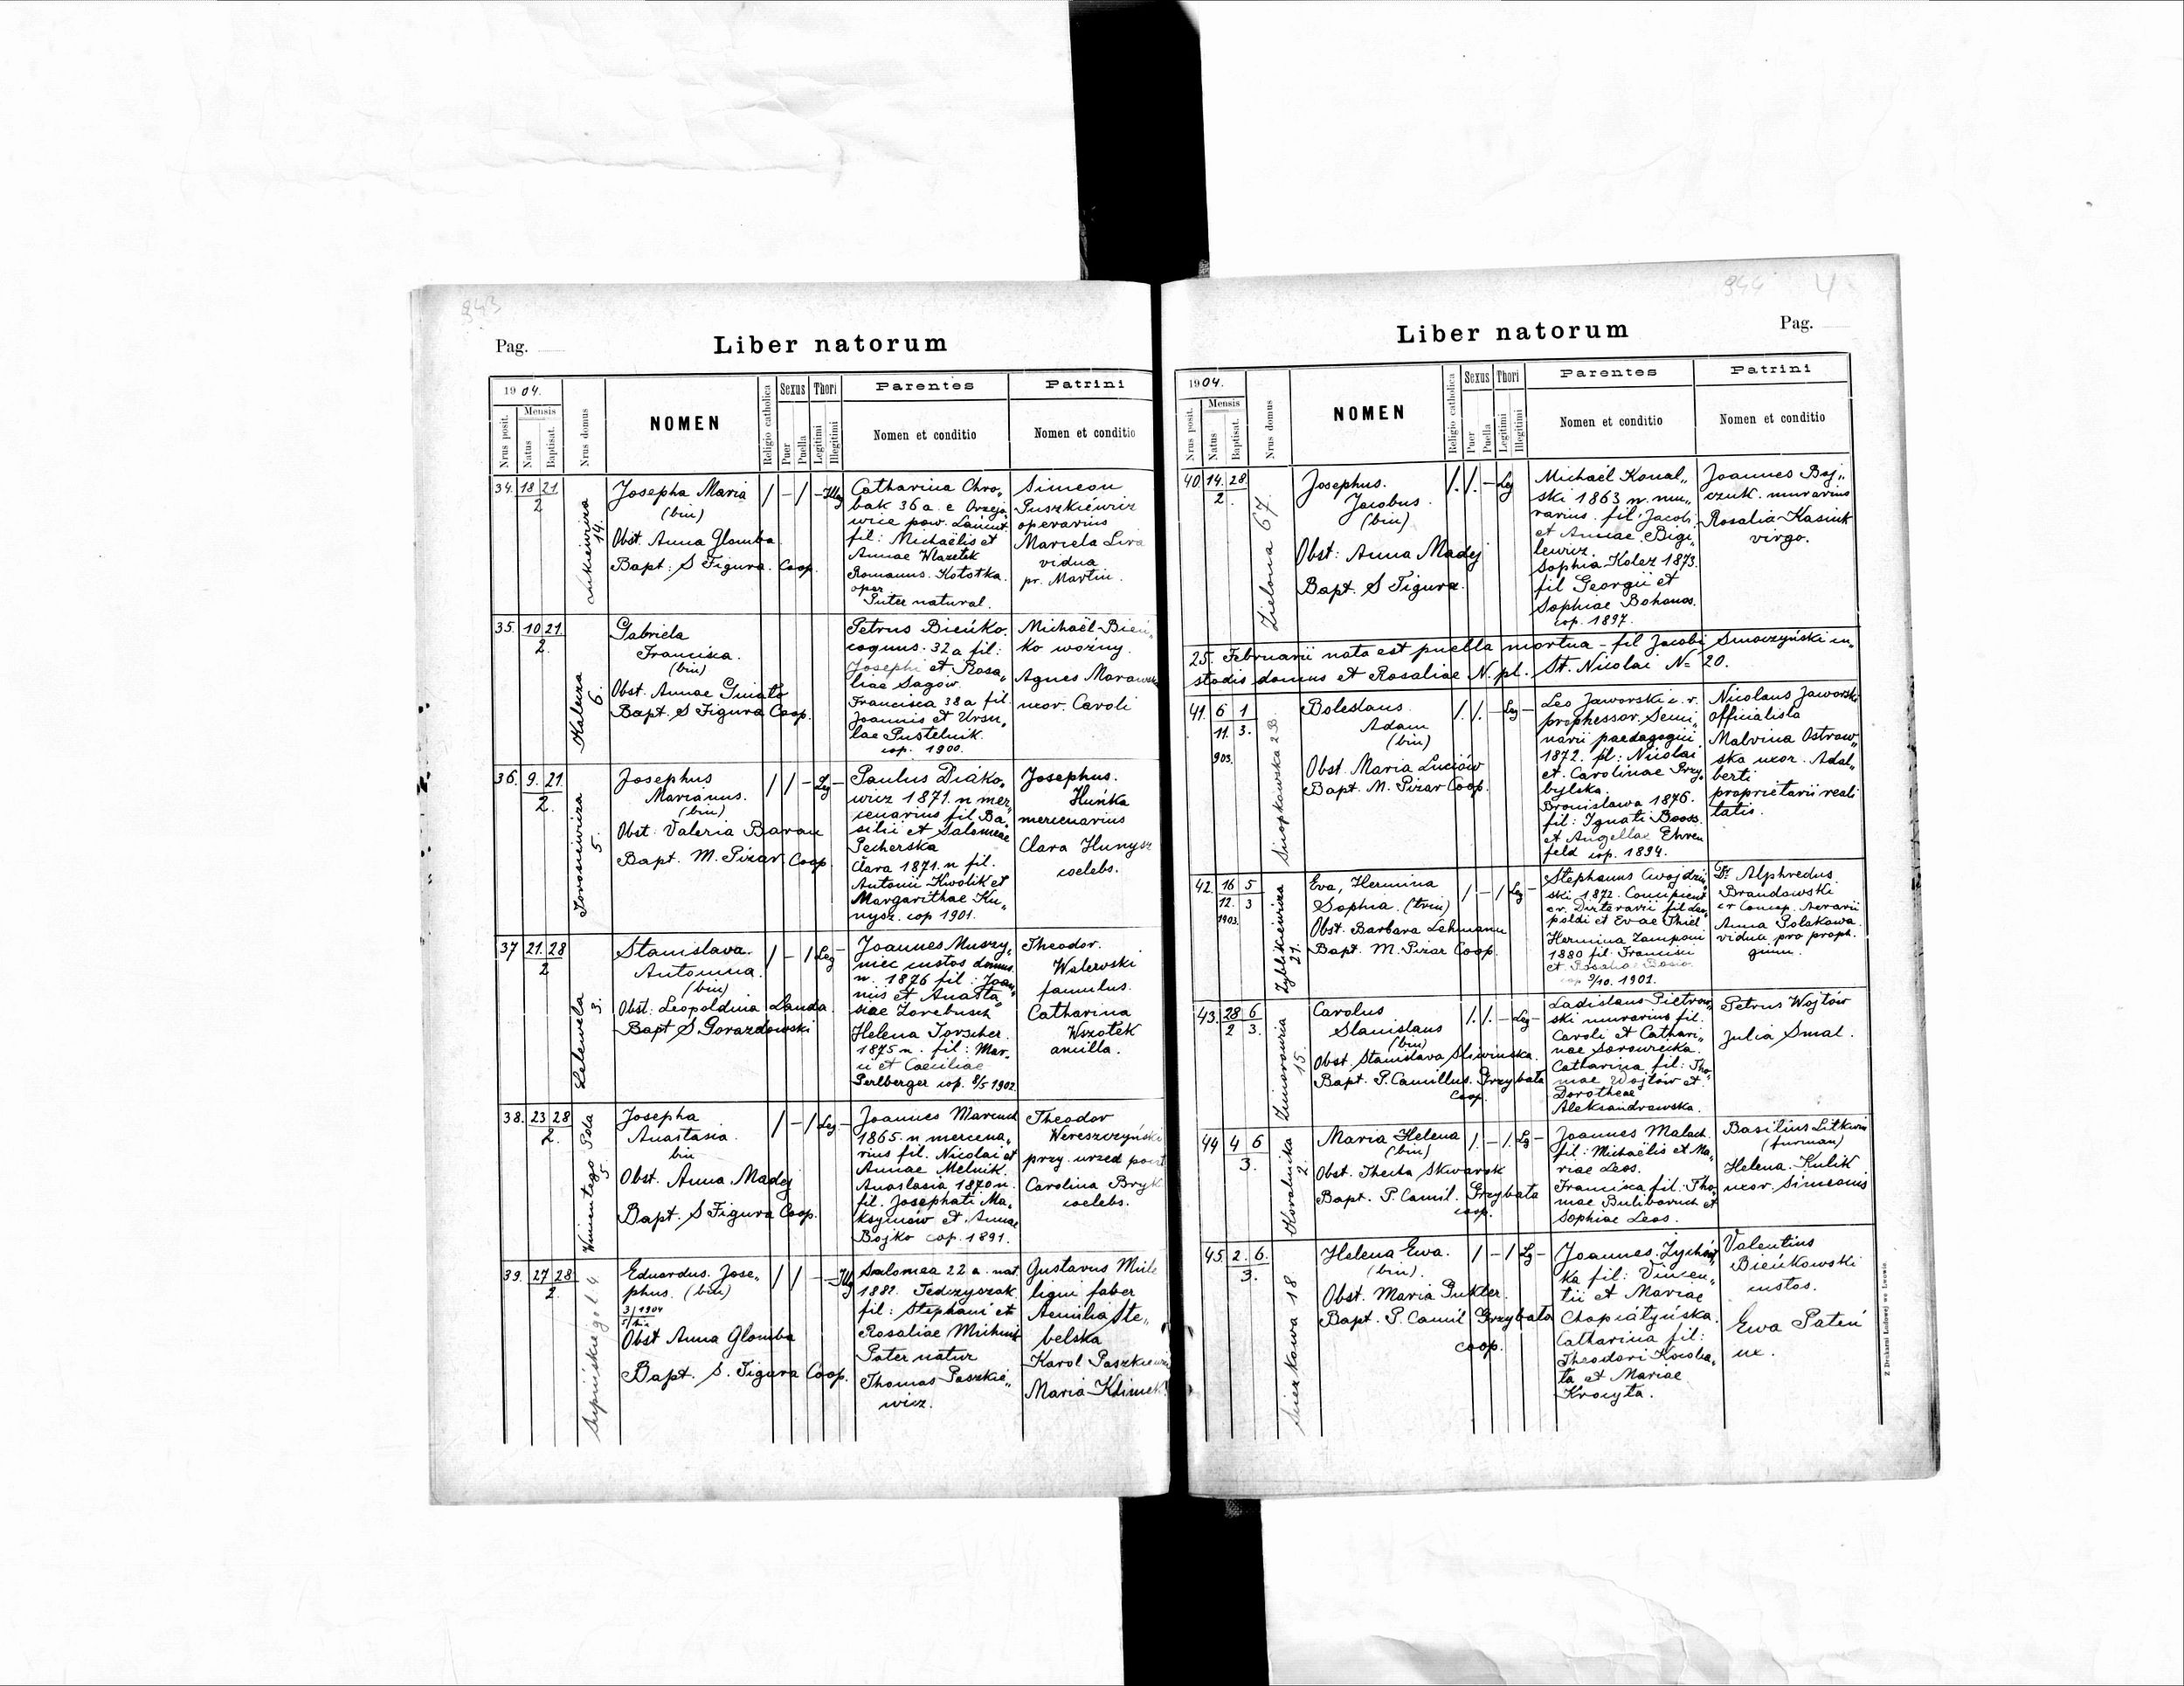 943
Pag.
Liber natorum
1904.
Nrus posit.
Mensis
Natus
Baptisat.
Nrus domus
NOMEN
Religio catholica
Sexus
Puer
Puella
Thori
Legitimi
Illegitimi
Parentes
Nomen et conditio
Patrini
Nomen et conditio
34. 18 21
2
14.
Josepha Maria
(bin)
Obst. Anna Glomba
Bapt: S Figura. Coop.
/ - / - Illeg
Catharina Chro„
bak 36 a. e
wice pow. Łańcut
fil: Michaëlis et
Annae
Romanus. Kototka
oper.
Pater natural.
Simeon
Puszkiéwicz
operarius
Mariela
vidua
pr. Martin.
35. 10 21.
2.
Kalecza
6.
Gabriela
Francisca.
(bin)
Obst. Annae
Bapt. S Figura Coop.
Petrus Bieńko.
coquus. 32 a fil:
Josephi et Rosa„
liae Sagów.
Francisca 38 a fil.
Joannis et Ursu„
lae Pustelnik.
cop. 1900.
Michaël Bień„
ko woźny.
Agnes
uxor. Caroli
36. 9. 21.
2.
Torosiewicza
5.
Josephus
Marianus.
(bin)
Obst: Valeria Baran
Bapt. M. Pizar Coop.
/ / - Leg -
Paulus Diáko„
wicz 1871. n mer„
cenarius fil Ba„
silii et Salomeae
Pecherska
Clara 1871. n fil.
Antonii Kwolik et
Margarithae Hu„
nysz. cop 1901.
Josephus.
Huńka
mercenarius
Clara Hunysz
coelebs.
37 21. 28
2
Lelewela
3.
Stanislava.
Antonina.
(bin)
Obst: Leopoldina Landa
Bapt S. Gorazdowski
/ - / Leg -
Joannes Muszy„
niec custos domus
n. 1876 fil: Joan„
nis et Anasta„
siae
Helena Torscher.
1875 n. fil: Mar„
ii et Caeciliae
Perlberger cop. 8/5 1902.
Theodor.
Walewski
famulus.
Catharina
Wszołek
ancilla.
38. 23 28
2.
Wincentego Pola
5.
Josepha
Anastasia.
bin
Obst. Anna Madej
Bapt. S Figura Coop.
/ - / Leg -
Joannes
1865. n mercena„
rius fil. Nicolai et
Annae Melnik.
Anastasia 1870 n.
fil. Josephati Ma„
ksymów et Annae
Bojko cop. 1891.
Theodor
Wereszczyński
przy. urzed
Carolina Bryk
coelebs.
39. 27 28
2.
Eduardus. Jose„
phus. (bin)
Obst Anna Glomba
Bapt. S. Figura Coop.
/ / - Illeg
Salomea 22 a. nat.
1882. Fedczyszak
fil: Stephani et
Rosaliae
Pater natur
Thomas Paszkié„
wicz.
Gustavus
ligni faber
Aemilia Ste„
belska
Karol Paszkiewicz
Maria Klimek
944 4
Pag.
Liber natorum
1904.
Nrus posit.
Mensis
Natus
Baptisat.
Nrus domus
NOMEN
Religio catholica
Sexus
Puer
Puella
Thori
Legitimi
Illegitimi
Parentes
Nomen et conditio
Patrini
Nomen et conditio
40 14. 28
2.
Zielona 67.
Josephus.
Jacobus.
(bin)
Obst: Anna Madej
Bapt. S Figura.
/. /. - Leg
Michaël Kowal„
ski 1863 n. mu„
rarius. fil Jacobi
et Annae. Bigi„
lewicz.
Sophia Kolez 1873.
fil Georgii et
Sophiae Bohonos.
cop. 1897.
Joannes Boj„
czuk. murarius
Rosalia Kasiuk
virgo.
25. Februarii nata est puella mortua - fil Jacobi Smoczyński cu„
stodis domus et Rosaliae N. pl. St. Nicolai № 20.
41. 6 1
11. 3.
903.
Boleslaus.
Adam
(bin)
Obst. Maria Luciów
Bapt. M. Pizar Coop.
/. /. - Leg -
Leo Jaworski c. r.
prophessor. Semi„
narii paedagogici
1872. pl: Nicolai
et. Carolinae Przy„
bylska.
Bronislawa 1876.
fil: Ignati Booss.
et Angellae Ehren
feld cop. 1894.
Nicolaus Jaworski
officialista
Malvina Ostrow„
ska uxor. Adal„
berti
proprietarii reali
tatis.
42. 16 5
12. 3
1903.
Zyblikiewicza
21.
Eva, Hermina
Sophia. (trin)
Obst. Barbara Lehmann
Bapt. M. Pizar Coop.
/ - / Leg -
Stephanus
ski 1872.
fil Leo„
poldi et Evae Thiel
Hermina Zamponi
1880 fil: Francisci
et
cop 9/10. 1901.
Dr Alphredus
Brandowski
Anna Polakowa
vidua pro proph.
gimn.
43. 28 6
2 3.
Zimorowicza
15.
Carolus
Stanislaus
(bin)
Obst. Stanislava Sliwinska.
Bapt. P. Camillus. Grzybała
Coop.
/. /. - Leg -
Ladislaus Pietrow„
ski murarius fil.
Caroli et Cathari„
nae
Catharina fil: Tho„
mae Wojtów et
Dorotheae
Aleksandrowska.
Petrus Wojtów
Julia Smal.
44 4 6
3.
2.
Maria Helena
(bin)
Obst. Thecla Skwarek
Bapt. P. Camil. Grzybała
coop.
/. - /. Lg -
Joannes Malach.
fil: Michaëlis et Ma„
riae Leos.
Francisca fil: Tho„
mae et
Sophiae Leos.
Basilius
(furman)
Helena. Kulik
uxor. Simeonis
45. 2. 6.
3.
18.
Helena Ewa.
(bin).
Obst. Maria
Bapt. P. Camil Grzybała
coop.
/ - / Lg -
Joannes.
ka fil: Vincen„
tii et Mariae
Catharina fil:
Theodori
ta et Mariae
Krocyta.
Valentius
Bieńkowski
custos.
Ewa Pateń
ux.
Z Drukarni Ludowej we Lwowie.